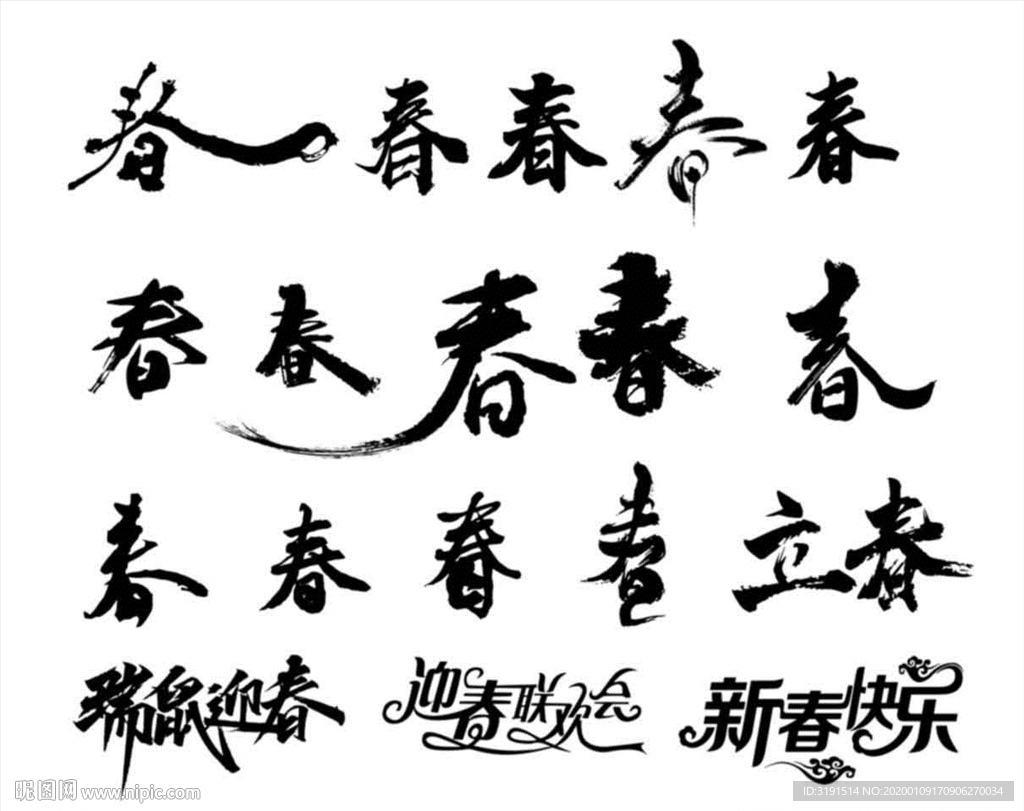 春 春 春 春 春
春 春 春 春 春
春 春 春 春 立春
瑞鼠迎春 迎春联欢会 新春快乐
昵图网 www.nipic.com ID:3191514 NO:20200109170906270034